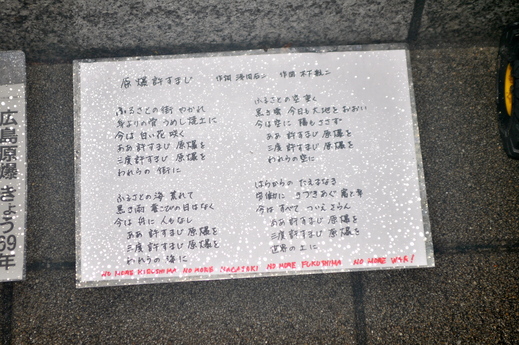 原爆許すまじ 作詞 浅田石二 作曲 木下航二
ふるさとの街 やかれ
身よりの骨 うめし焼土に
今は 白い花 咲く
ああ 許すまじ 原爆を
三度 許すまじ 原爆を
われらの 街に
ふるさとの海 荒れて
黒き雨 喜びの日はなく
今は 舟に 人もなし
ああ 許すまじ 原爆を
三度 許すまじ 原爆を
われらの 海に
ふるさとの空 重く
黒き雲 今日も 大地を おおい
今は 空に 陽も ささず
ああ 許すまじ 原爆を
三度 許すまじ 原爆を
われらの 空に
はらからの たえまなき
労働に きづきあぐ 富と幸
今は すべて ついえ さらん
ああ 許すまじ 原爆を
三度 許すまじ 原爆を
世界の 上に
NO MORE HIROSHIMA NO MORE NAGASAKI NO MORE FUKUSHIMA NO MORE WAR!
広島原爆 きょう69年